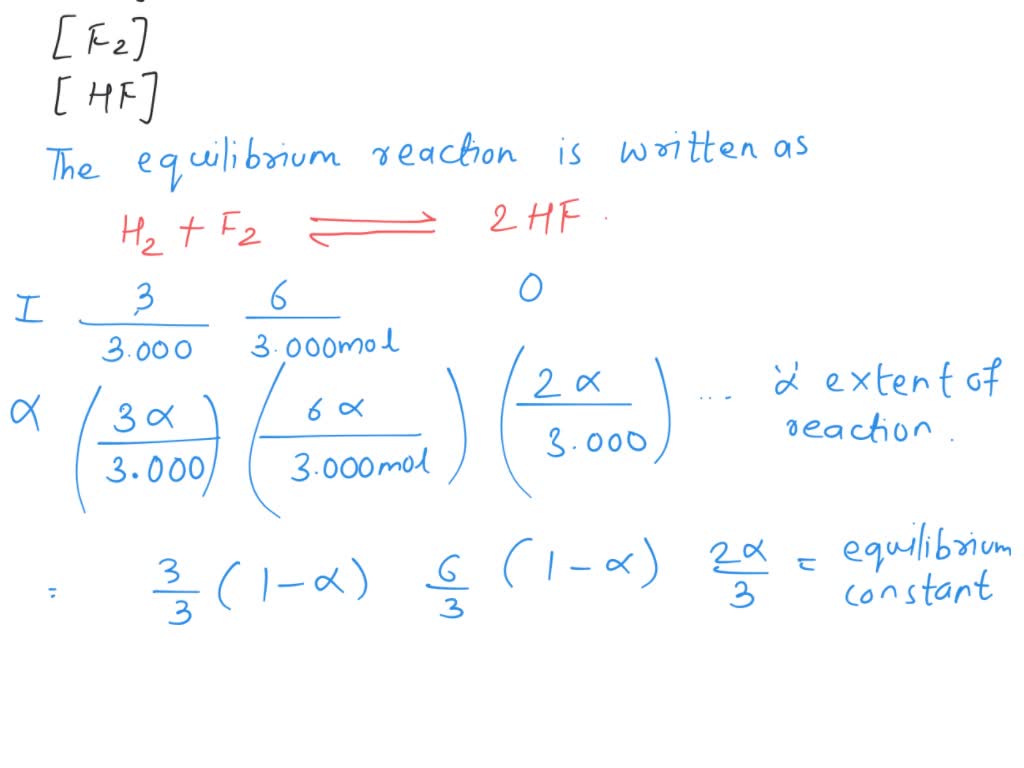 [F2]
[HF]
The equilibrium reaction is written as
H2 + F2 ⇌ 2HF.
I 3/3.000 6/3.000mol 0
α (3α/3.000) (6α/3.000mol) (2α/3.000) ... α extent of reaction.
= 3/3 (1-α) 6/3 (1-α) 2α/3 = equilibrium constant